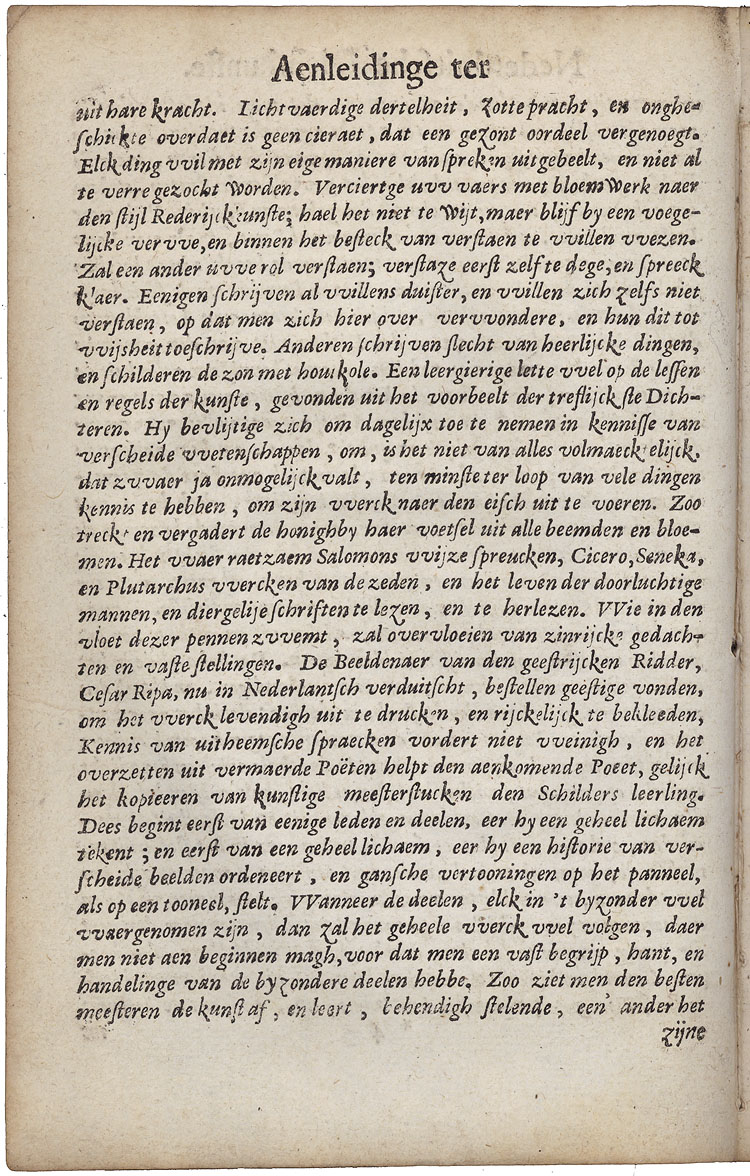 Aenleidinge ter
uit hare kracht. Lichtvaerdige dertelheit, zotte pracht, en onghe-
schickte overdaet is geen cieraet, dat een gezont oordeel vergenoegt.
Elck ding vvil met zijn eige maniere van spreken uitgebeelt, en niet al
te verre gezocht Worden. Verciert ge uvv vaers met bloemWerk naer
den stijl Rederijckkunste; hael het niet te Wijt, maer blijf by een voege-
lijcke vervve, en binnen het besteck van verstaen te vvillen vvezen.
Zal een ander uvve rol verstaen; verstaze eerst zelf te dege, en spreeck
klaer. Eenigen schrijven al vvillens duister, en vvillen zich zelfs niet
verstaen, op dat men zich hier over vervvondere, en hun dit tot
vvijsheit toeschrijve. Anderen schrijven slecht van heerlijcke dingen,
en schilderen de zon met houtkole. Een leergierige lette vvel op de lessen
en regels der kunste, gevonden uit het voorbeelt der treflijckste Dich-
teren. Hy bevlijtige zich om dagelijx toe te nemen in kennisse van
verscheide vvetenschappen, om, is het niet van alles volmaeckelijck,
dat zvvaer ja onmogelijck valt, ten minste ter loop van vele dingen
kennis te hebben, om zijn vverck naer den eisch uit te voeren. Zoo
treckt en vergadert de honighby haer voetsel uit alle beemden en bloe-
men. Het vvaer raetzaem Salomons vvijze spreucken, Cicero, Seneka,
en Plutarchus vvercken van de zeden, en het leven der doorluchtige
mannen, en diergelije schriften te lezen, en te herlezen. VVie in den
vloet dezer pennen zvvemt, zal overvloeien van zinrijcke gedach-
ten en vaste stellingen. De Beeldenaer van den geestrijcken Ridder,
Cesar Ripa, nu in Nederlantsch verduitscht, bestellen geestige vonden,
om het vverck levendigh uit te drucken, en rijckelijck te bekleeden,
Kennis van uitheemsche spraecken vordert niet vveinigh, en het
overzetten uit vermaerde Poëten helpt den aenkomende Poeet, gelijck
het kopieeren van kunstige meesterstucken den Schilders leerling.
Dees begint eerst van eenige leden en deelen, eer hy een geheel lichaem
tekent; en eerst van een geheel lichaem, eer hy een historie van ver-
scheide beelden ordeneert, en gansche vertooningen op het panneel,
als op een tooneel, stelt. VVanneer de deelen, elck in 't byzonder vvel
vvaergenomen zijn, dan zal het geheele vverck vvel volgen, daer
men niet aen beginnen magh, voor dat men een vast begrijp, hant, en
handelinge van de byzondere deelen hebbe. Zoo ziet men den besten
meesteren de kunst af, en leert, behendigh stelende, een ander het
zijne